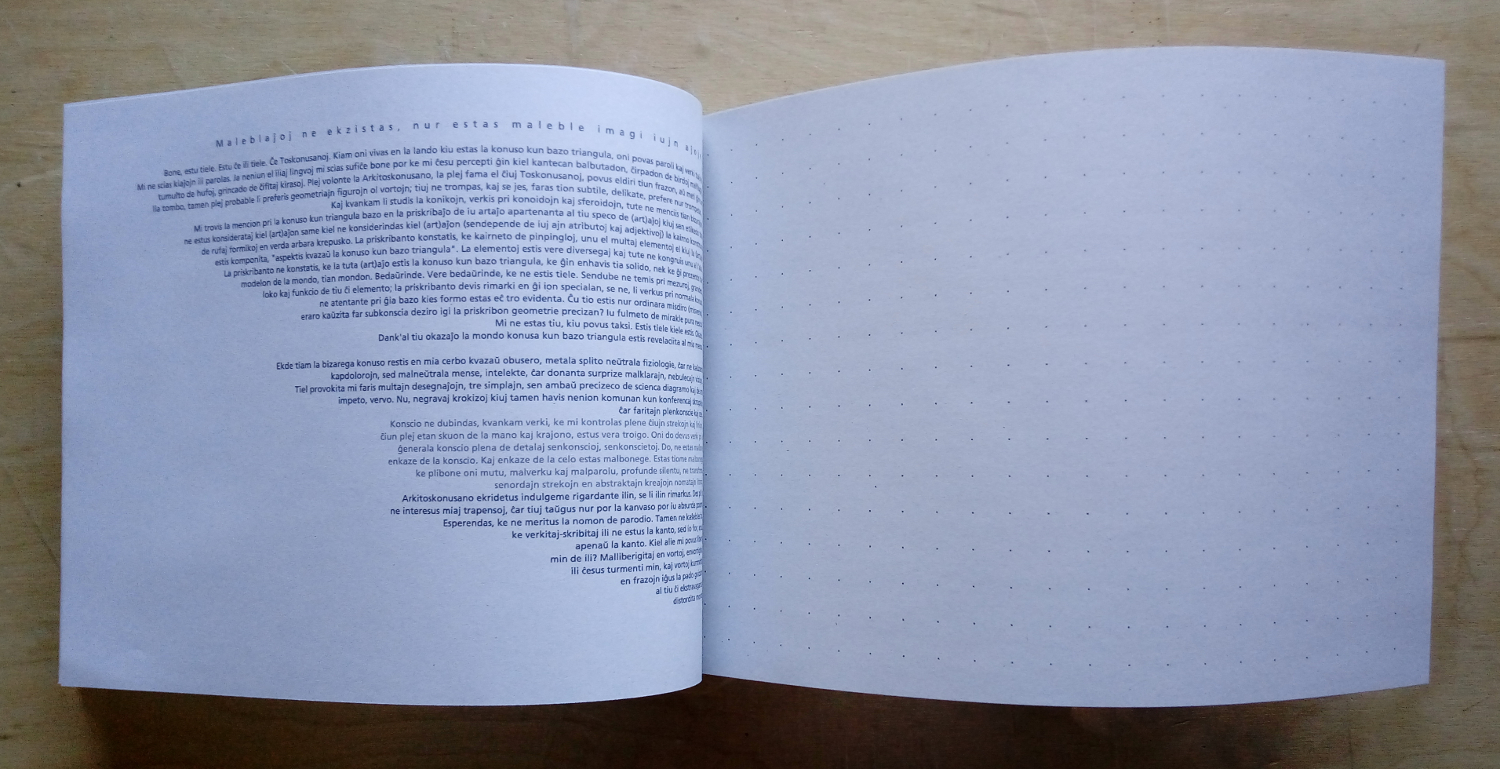 Maleblaĵoj ne ekzistas, nur estas maleble imagi iujn aĵojn
Bone, estu tiele. Estu ĉe ili tiele. Ĉe Toskonusanoj. Kiam oni vivas en la lando kiu estas la konuso kun bazo triangula, oni povas paroli kaj verki
Mi ne scias kiajlojn ili parolas. Ja neniun el iliaj lingvoj mi scias sufiĉe bone por ke mi ĉesu percepti ĝin kiel kantecan balbutadon, ĉirpadon de birdoj
tumulto de hufoj, grincado de ĉifitaj kirasoj. Plej volonte la Arkitoskonusano, la plej fama el ĉiuj Toskonusanoj, povus eldiri tiun frazon, aŭ
ila tombo, tamen plej probable li preferis geometriajn figurojn ol vortojn; tiuj ne trompas, kaj se jes, faras tion subtile, delikate, prefere nur
Kaj kvankam li studis la konikojn, verkis pri konoidojn kaj sferoidojn, tute ne menciis tian
Mi trovis la mencion pri la konuso kun triangula bazo en la priskribaĵo de iu artaĵo apartenanta al tiu speco de (art)aĵoj kiuj sen
ne estus konsiderataj kiel (art)aĵon same kiel ne konsiderindas kiel (art)aĵon (sendepende de iuj ajn atributoj kaj adjektivoj) la
de rufaj formikoj en verda arbara krepusko. La priskribanto konstatis, ke kairneto de pinpingloj, unu el multaj elementoj el kiuj
estis komponita, "aspektis kvazaŭ la konuso kun bazo triangula". La elementoj estis vere diversegaj kaj tute ne kongruis
La priskribanto ne konstatis, ke la tuta (art)aĵo estis la konuso kun bazo triangula, ke ĝin enhavis tia solido, nek ke ĝi
modelon de la mondo, tian mondon. Bedaŭrinde. Vere bedaŭrinde, ke ne estis tiele. Sendube ne temis pri mezuroj,
loko kaj funkcio de tiu ĉi elemento; la priskribanto devis rimarki en ĝi ion specialan, se ne, li verkus pri
ne atentante pri ĝia bazo kies formo estas eĉ tro evidenta. Ĉu tio estis nur ordinara misdiro
eraro kaŭzita far subkonscia deziro igi la priskribon geometrie precizan? Iu fulmeto de mirakle pura
Mi ne estas tiu, kiu povus taksi. Estis tiele kiele estis.
Dank'al tiu okazaĵo la mondo konusa kun bazo triangula estis revelaciita al
Ekde tiam la bizarega konuso restis en mia cerbo kvazaŭ obusero, metala splito neŭtrala fiziologie, ĉar ne
kapdolorojn, sed malneŭtrala mense, intelekte, ĉar donanta surprize malklarajn, nebulecajn
Tiel provokita mi faris multajn desegnaĵojn, tre simplajn, sen ambaŭ precizeco de scienca diagramo kaj
impeto, vervo. Nu, negravaj krokizoj kiuj tamen havis nenion komunan kun konferencaj
ĉar faritajn plenkonscie
Konscio ne dubindas, kvankam verki, ke mi kontrolas plene ĉiujn strekojn kaj
ĉiun plej etan skuon de la mano kaj krajono, estus vera troigo. Oni do devus
ĝenerala konscio plena de detalaj senkonscioj, senkonscietoj. Do, ne estas
enkaze de la konscio. Kaj enkaze de la celo estas malbonege. Estas tiome
ke plibone oni mutu, malverku kaj malparolu, profunde silentu, ne
senordajn strekojn en abstraktajn kreaĵojn
Arkitoskonusano ekridetus indulgeme rigardante ilin, se li ilin rimarkus.
ne interesus miaj trapensoj, ĉar tiuj taŭgus nur por la kanvaso por iu
Esperendas, ke ne meritus la nomon de parodio. Tamen ne
ke verkitaj-skribitaj ili ne estus la kanto, sed
apenaŭ la kanto. Kiel alie mi povus
min de ili? Malliberigitaj en vortoj,
ili ĉesus turmenti min, kaj vortoj
en frazojn iĝus la
al tiu ĉi
distordita